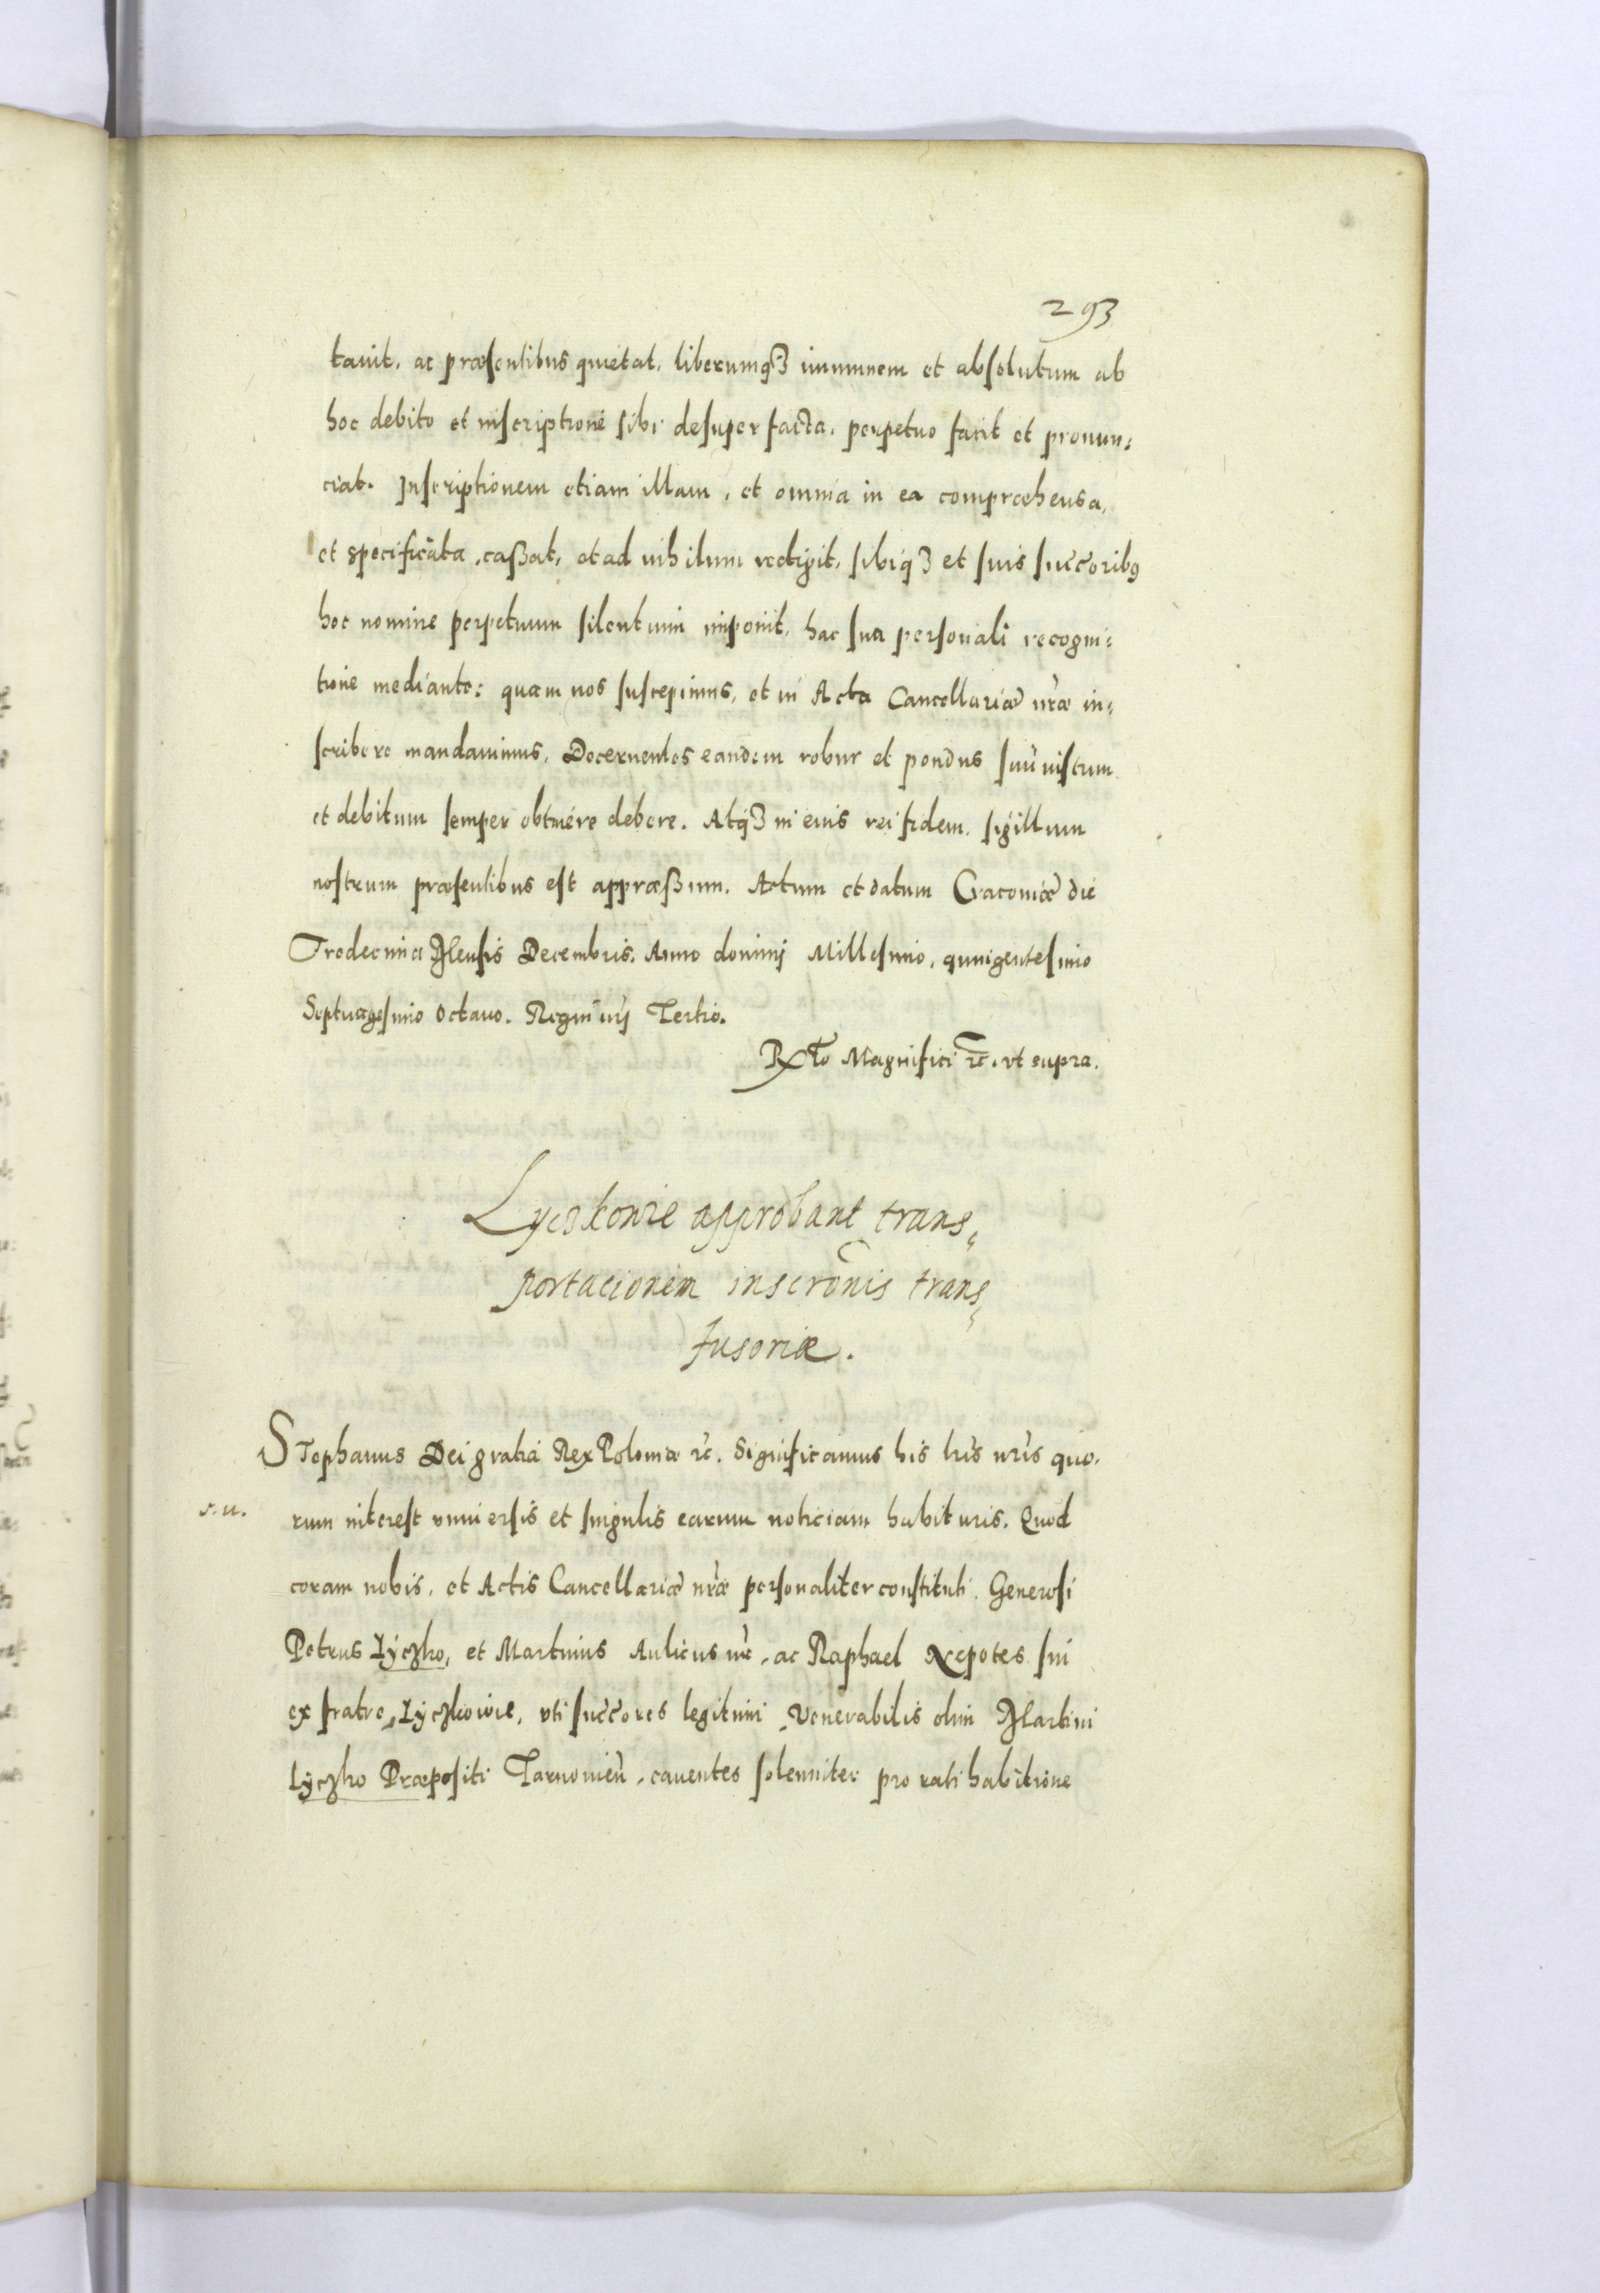 293
tauit, ac præsentibus quietat, liberumqȝ immunem et absolutum ab
hoc debito et inscriptione sibi desuper facta, perpetuo facit et pronun:
ciat. Inscriptionem etiam illam, et omnia in ea compræhensa,
et specificata, cassat, et ad nihilum redigit, sibiqȝ et suis succ̃oribꝰ
hoc nomine perpetuum silentium imponit, hac sua personali recogni:
tione mediante: quam nos suscepimus, et in Acta Cancellariæ nr̃æ in:
scribere mandauimus, Decernentes eandem robur et pondus suũ iustum
et debitum semper obtinere debere. Atqȝ in eius rei fidem, sigillum
nostrum præsentibus est appræssum. Actum et datum Cracouiæ die
Tredecima Mensis Decembris, Anno domini Millesimo, quingentesimo
Septuagesimo Octauo. Regni nr̃j Tertio.
Rx̃to Magnifici r̃c. vt supra.
Lyczkowie approbant trans
portacionem inscrõnis trans
fusoriæ.
STephanus Dei gratia Rex Poloniæ r̃c. Significamus his lr̃is nr̃is quo.
r.u.
rum interest vniuersis et singulis earum noticiam habituris. Quod
coram nobis, et Actis Cancellariæ nr̃æ personaliter constituti, Generosi
Petrus Lyczko, et Martinus Aulicus nr̃, ac Raphael Nepotes sui
ex fratre, Lyczkowie, vti succ̃ores legitimi, Venerabilis olim Martini
Lyczko Præpositi Tarnouień, cauentes solenniter pro rati habitione